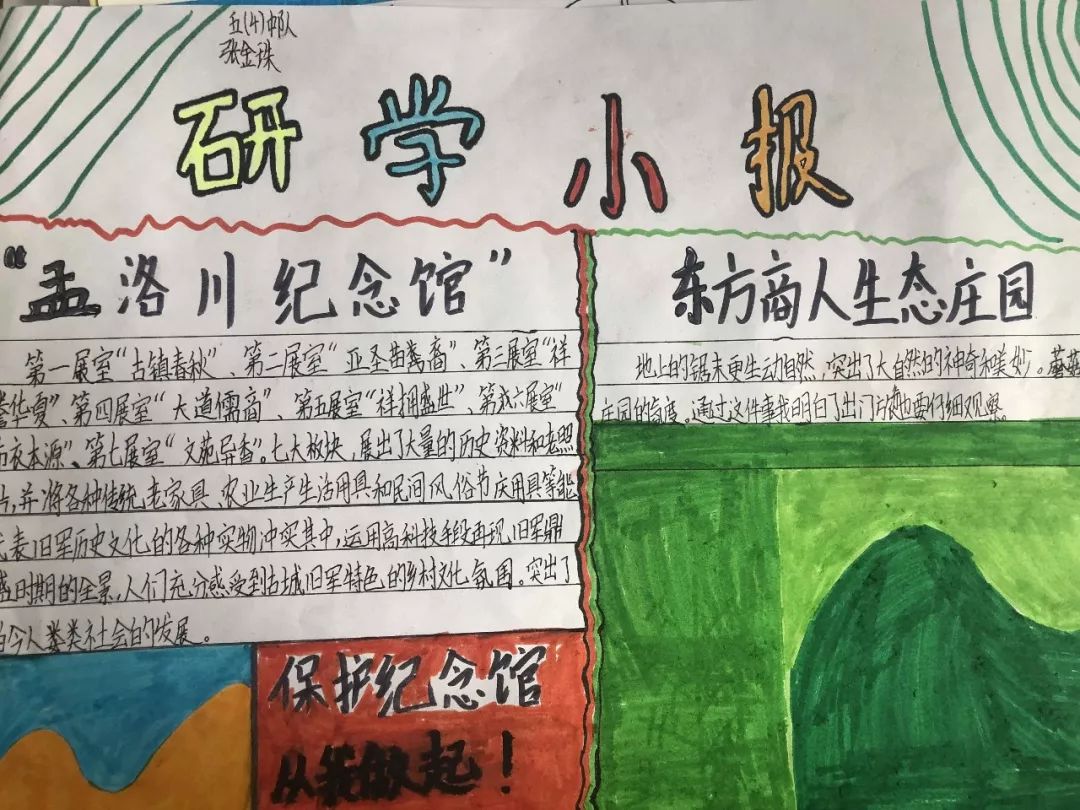 五(4)中队
张金珠
研学小报
“孟洛川纪念馆”
第一展室“古镇春秋”、第二展室“亚圣苗裔商”、第三展室“祥
誉华夏”、第四展室“大道儒商”、第五展室“祥拥盛世”、第六展室“
衣本源”、第七展室“文苑异香”。七大板块，展出了大量的历史资料和老照
片，并将各种传统老家具、农业生产生活用具和民间风俗节庆用具等能
代表旧军历史文化的各种实物冲实其中，运用高科技手段再现旧军鼎
盛时期的全景，人们充分感受到古城旧军特色的乡村文化氛围。突出了
当今人类社会的发展。
保护纪念馆
从我做起！
东方商人生态庄园
地上的锯末更生动自然，突出了大自然的神奇和美妙。蘑菇
庄园的角度。通过这件事我明白了出门放也要仔细观察。